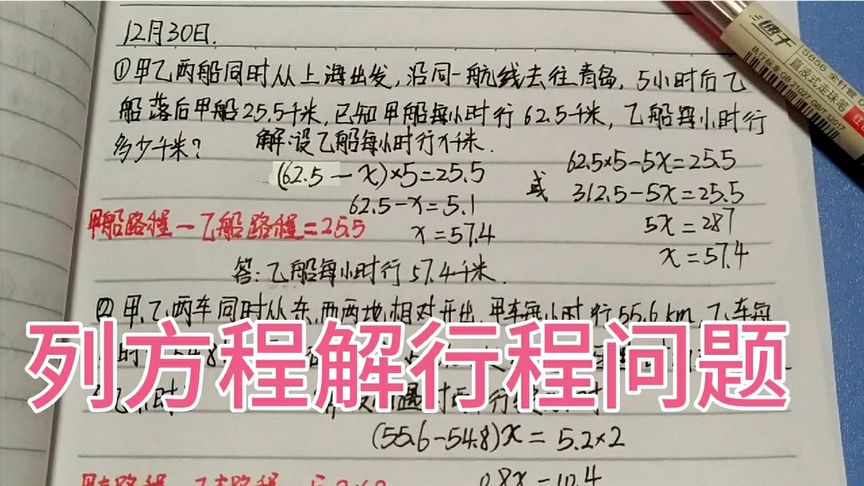 12月30日.
①甲乙两船同时从上海出发,沿同一航线去往青岛,5小时后乙
船落后甲船25.5千米,已知甲船每小时行62.5千米,乙船每小时行
多少千米?
解:设乙船每小时行x千米.
(62.5-x)×5=25.5
62.5-x=5.1
x=57.4
或
62.5×5-5x=25.5
312.5-5x=25.5
5x=287
x=57.4
甲船路程-乙船路程=25.5
答:乙船每小时行57.4千米.
②甲,乙两车同时从东,西两地相对开出,甲车每小时行55.6km,乙车每
列方程解行程问题
(55.6-54.8)x=5.2×2
0.8x=10.4